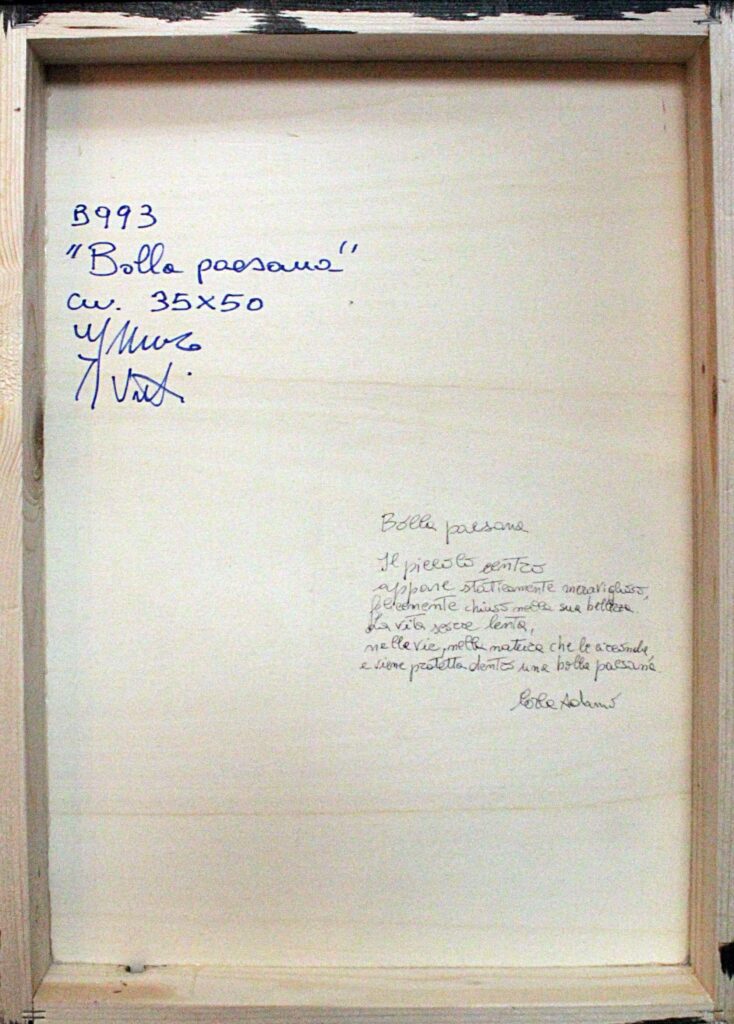 B993
"Bolla paesana"
cm. 35x50
Bolla paesana
Il piccolo centro
appare staticamente meraviglioso,
chiuso nella sua bellezza.
La vita scorre lenta,
nelle vie, nella natura che le circonda,
e viene protetta dentro una bolla paesana.
Adamo